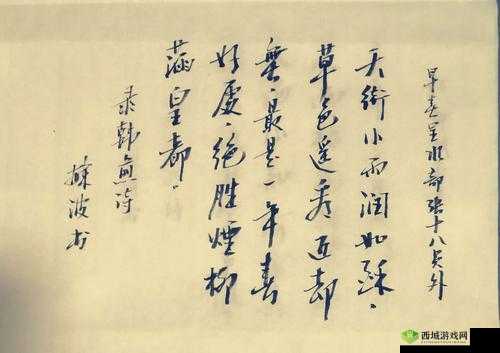 早春呈水部张十八员外
天街小雨润如酥，
草色遥看近却
無。最是一年春
好處，绝勝煙柳
滿皇都。
录韩愈诗
波书
西域游戏网